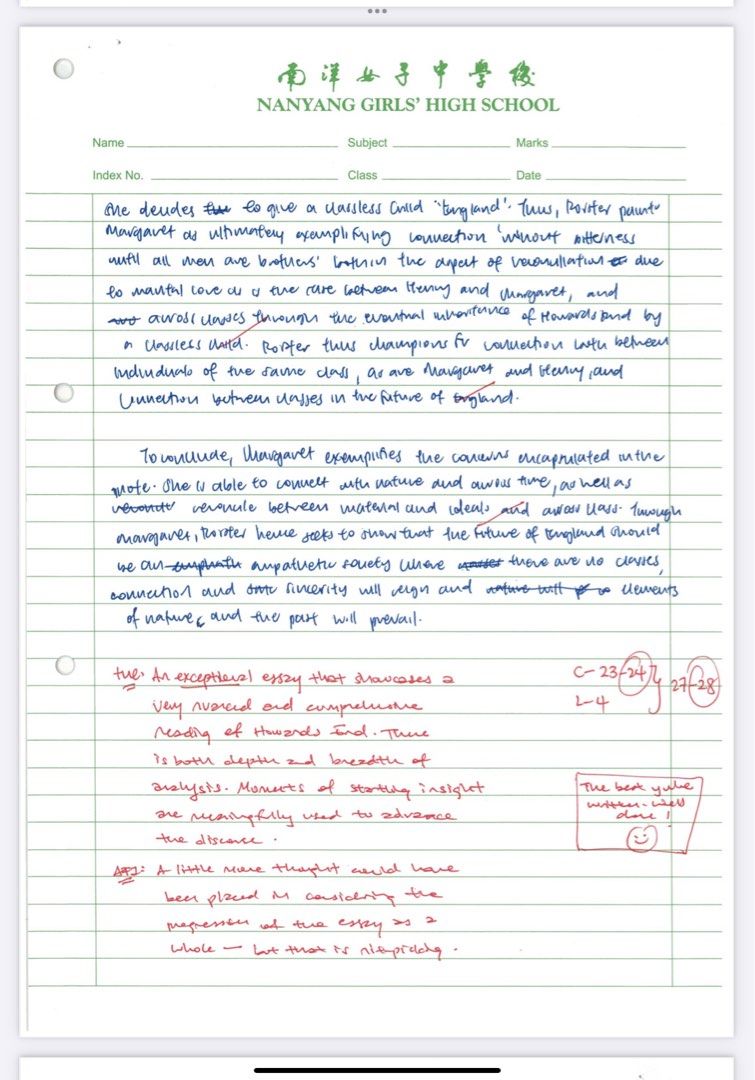 南洋女子中學校
NANYANG GIRLS' HIGH SCHOOL
Name Subject Marks
Index No. Class Date
She decides to give a classless child 'England'. Thus, Forster paints
Margaret as ultimately exemplifying connection 'without bitterness
until all men are brothers' both in the aspect of reconciliation due
to marital love as is the case between Henry and Margaret, and
across classes through the eventual inheritance of Howards End by
a classless child. Forster thus champions for connection both between
individuals of the same class, as are Margaret and Henry, and
connection between classes in the future of England.
To conclude, Margaret exemplifies the concerns encapsulated in the
quote. She is able to connect with nature and across time, as well as
reconcile between material and ideals and across class. Through
Margaret, Forster hence seeks to show that the future of England should
be an empathetic society where there are no classes,
connection and sincerity will reign and elements
of nature and the past will prevail.
tve: An exceptional essay that showcases a
very nuanced and comprehensive
reading of Howards End. There
is both depth and breadth of
analysis. Moments of startling insight
are meaningfully used to advance
the discourse.
C-23-24
L-4
27-28
The best you've
written - well
done!
AFI: A little more thought could have
been placed in considering the
progression of the essay as a
whole — but that is nitpicking.